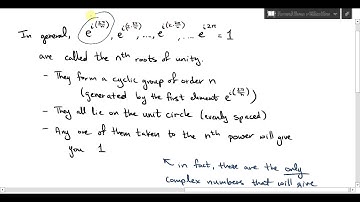 In general, e^{i(2π/n)}, e^{i(2·2π/n)}, ..., e^{i(k·2π/n)}, ... e^{i2π} = 1
are called the nth roots of unity.
- They form a cyclic group of order n
(generated by the first element e^{i(2π/n)})
- They all lie on the unit circle (evenly spaced)
- Any one of them taken to the nth power will give
you 1
↖ in fact, these are the only
complex numbers that will give